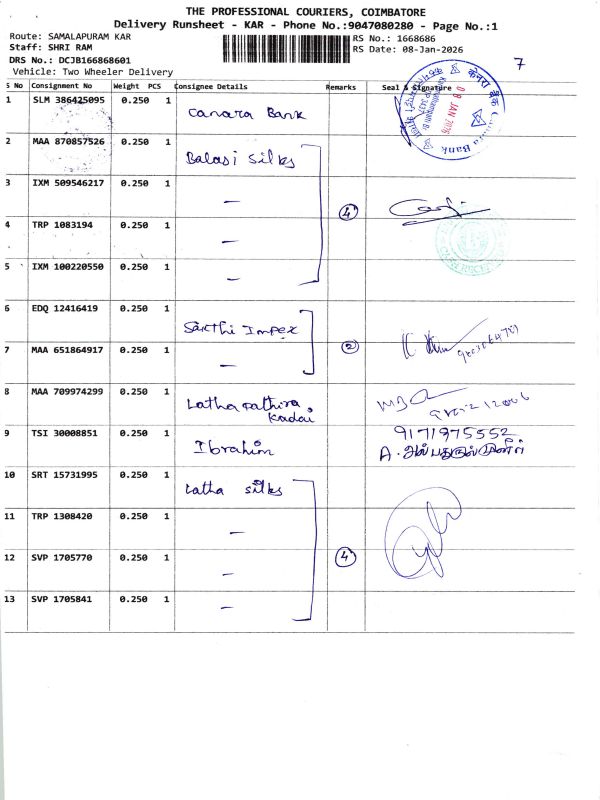 THE PROFESSIONAL COURIERS, COIMBATORE
Delivery Runsheet - KAR - Phone No.:9047080280 - Page No.:1
Route: SAMALAPURAM KAR
RS No.: 1668686
Staff: SHRI RAM
RS Date: 08-Jan-2026
DRS No.: DCJB166868601
7
Vehicle: Two Wheeler Delivery
S No Consignment No Weight PCS Consignee Details Remarks Seal & Signature
1 SLM 386425095 0.250 1 Canara Bank
08 JAN 2026
केनरा बैंक Canara Bank
2 MAA 870857526 0.250 1 Balasi Silks
3 IXM 509546217 0.250 1 —
4
4 TRP 1083194 0.250 1 —
5 IXM 100220550 0.250 1 —
6 EDQ 12416419 0.250 1 Sakthi Impex
2
7 MAA 651864917 0.250 1 —
8 MAA 709974299 0.250 1 Latha Pathira Kadai
9 TSI 30008851 0.250 1 Ibrahim
9171975552
10 SRT 15731995 0.250 1 Latha silks
11 TRP 1308420 0.250 1 —
4
12 SVP 1705770 0.250 1 —
13 SVP 1705841 0.250 1 —